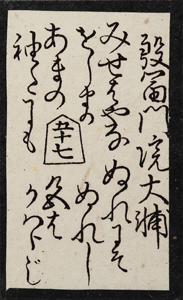 殷富門院大輔
みせはやな
をしまの
あまの
袖たにも
ぬれにそ
ぬれし
色は
かはらじ
五十七